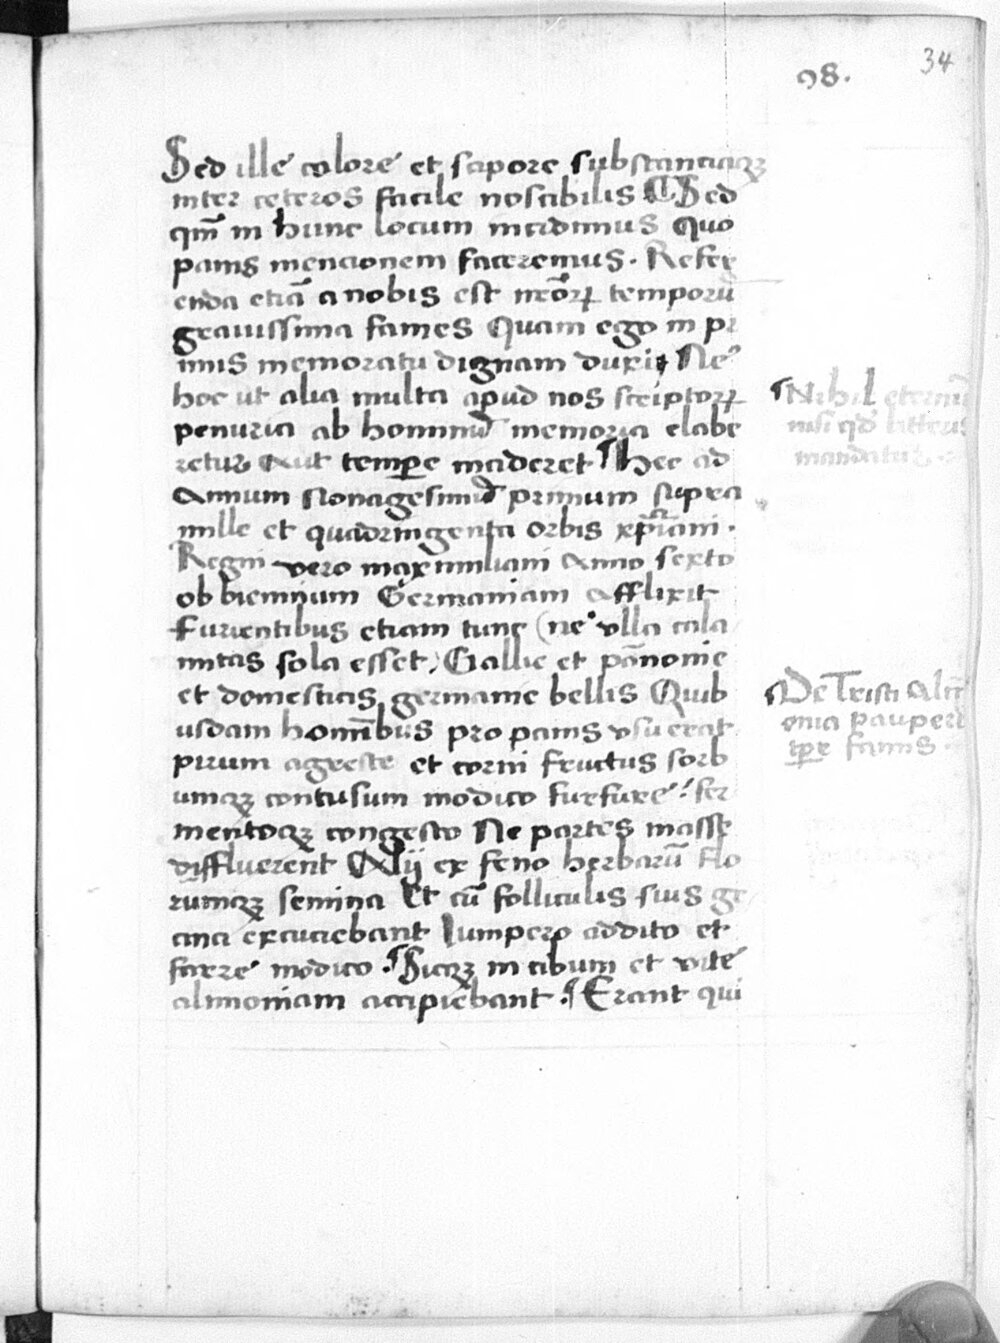 34
98.
Sed ille colore et sapore substanciaqꝫ
inter ceteros facile noscibilis ¶ Sed
qm̄ in hunc locum incidimus Quo
panis mencionem faceremus. Refer
enda etiā a nobis est nr̄oꝝ temporū
grauissima fames Quam ego in pri
mis memoratu dignam duxi Ne
hoc ut alia multa apud nos scriptoꝝ
penuria ab hominū memoria elabe
retur Aut tempore maderet ¶ Hec ad
Annum Nonagesimū primum supra
mille et quadringenta orbis xp̄iani.
Regni vero maximiliani Anno sexto
ob biennium Germaniam afflixit
Furientibus etiam tunc (ne vlla cala
mitas sola esset) Gallie et pānonie
et domesticis germanie bellis Quib
usdam hominibus pro panis vsu erat
pirum agreste et corni fructus sorb
umqꝫ contusum modico furfure fer
mentoqꝫ congesto Ne partes masse
diffluerent Alij ex feno herbarū flo
rumqꝫ semina Et cū folliculis suis gr
ana excuciebant Iumpero addito et
farre modico. ¶ Sicqꝫ in cibum et vite
alimoniam accipiebant. ¶ Erant qui
¶ Nihil eternū
nisi qd̄ litteris
mandatur.
¶ De Tristi
pauperū
tp̄re famis.